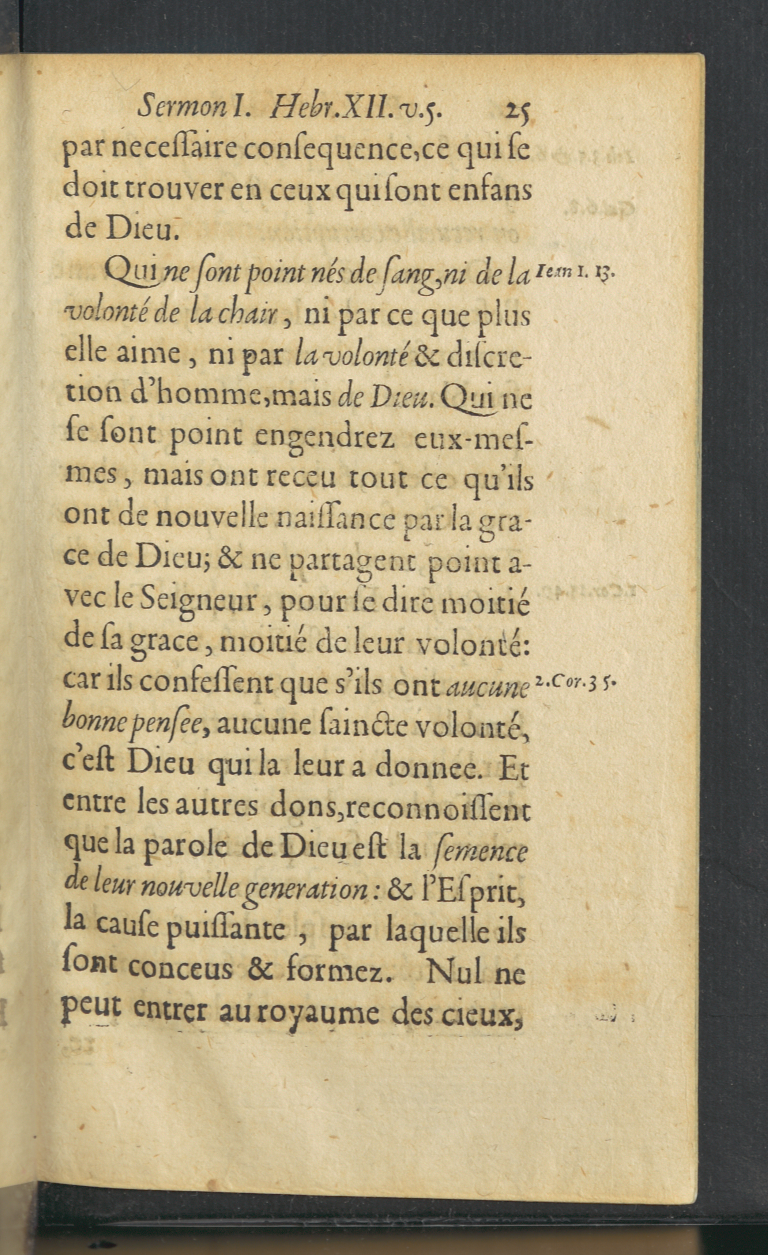 Sermon I. Hebr.XII.v.5. 25
par neceſſaire conſequence,ce qui ſe
doit trouver en ceux qui ſont enfans
de Dieu.
Qui ne ſont point nés de ſang,ni de la Iean 1. 13.
volonté de la chair, ni par ce que plus
elle aime, ni par la volonté & diſcre-
tion d'homme,mais de Dieu. Qui ne
ſe ſont point engendrez eux-meſ-
mes, mais ont receu tout ce qu'ils
ont de nouvelle naiſſance par la gra-
ce de Dieu; & ne partagent point a-
vec le Seigneur, pour ſe dire moitié
de ſa grace, moitié de leur volonté:
car ils confeſſent que s'ils ont aucune 2.Cor.3 5.
bonne penſee, aucune ſaincte volonté,
c'eſt Dieu qui la leur a donnee. Et
entre les autres dons,reconnoiſſent
que la parole de Dieu eſt la ſemence
de leur nouvelle generation: & l'Eſprit,
la cauſe puiſſante, par laquelle ils
ſont conceus & formez. Nul ne
peut entrer au royaume des cieux,